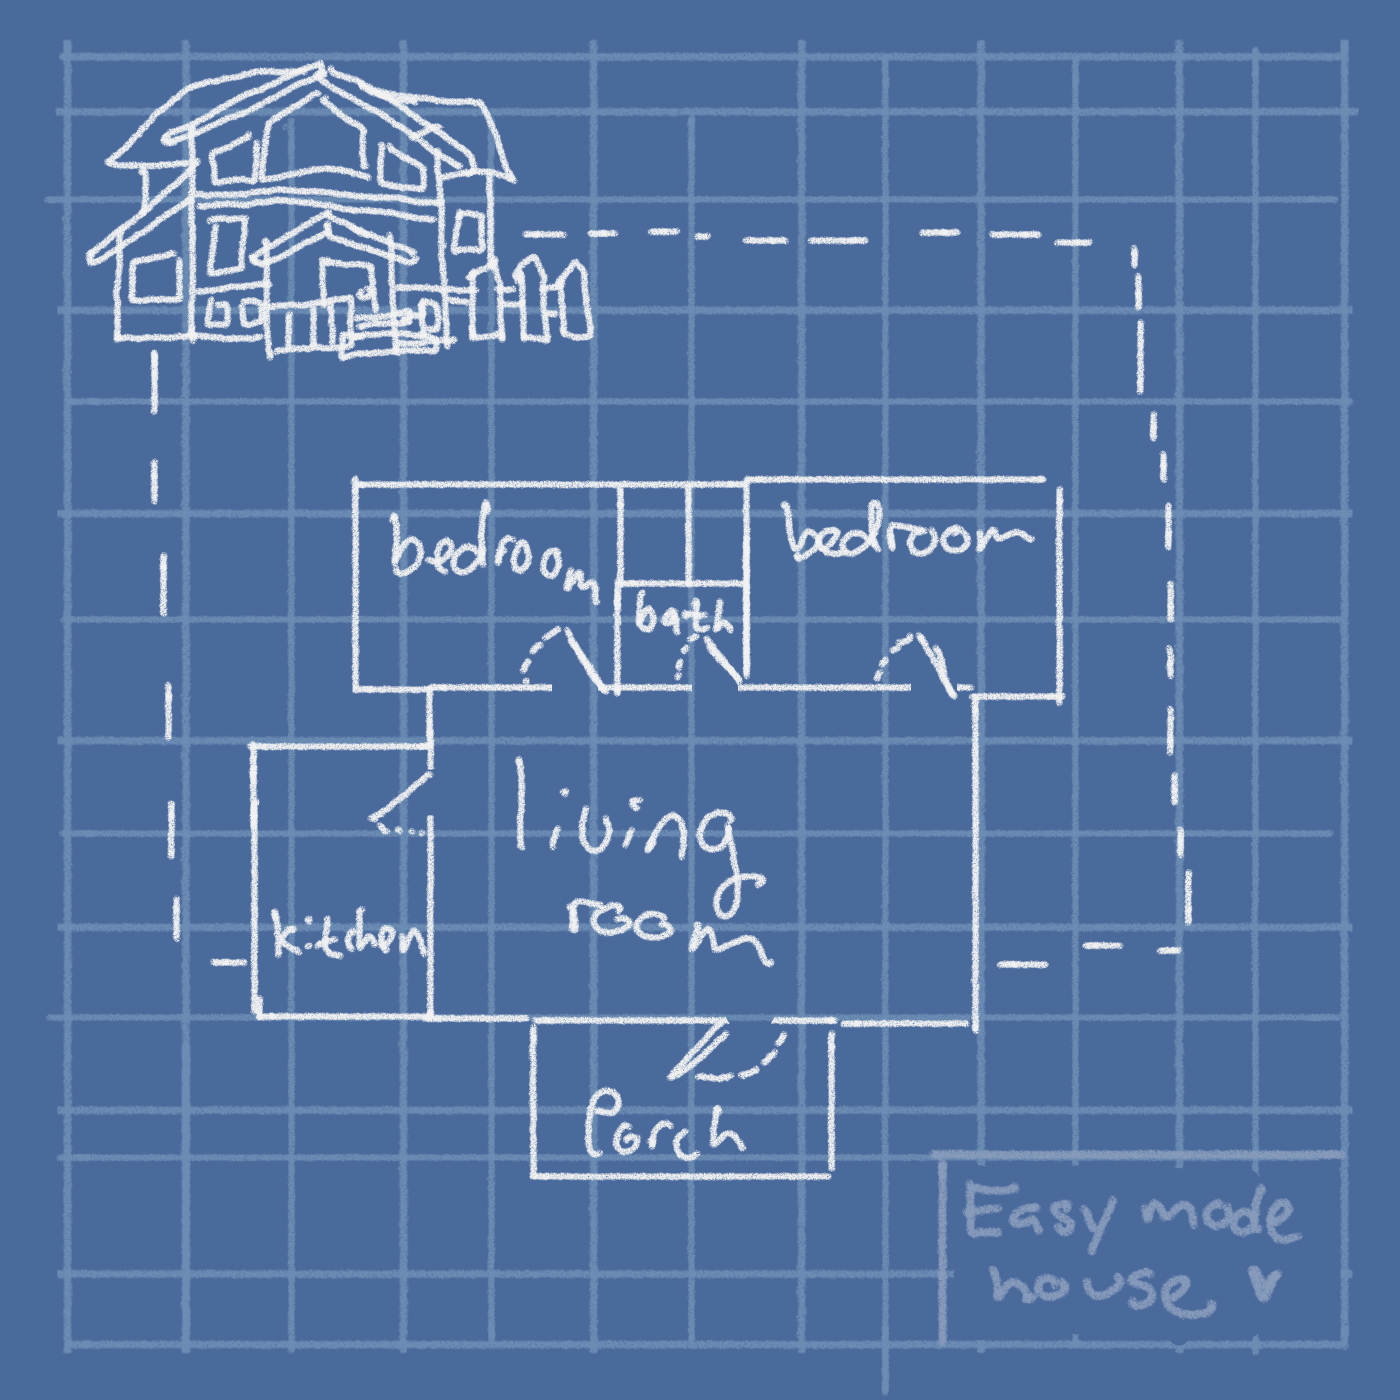 bedroom
bath
bedroom
living
room
kitchen
Porch
Easy mode
house ♥